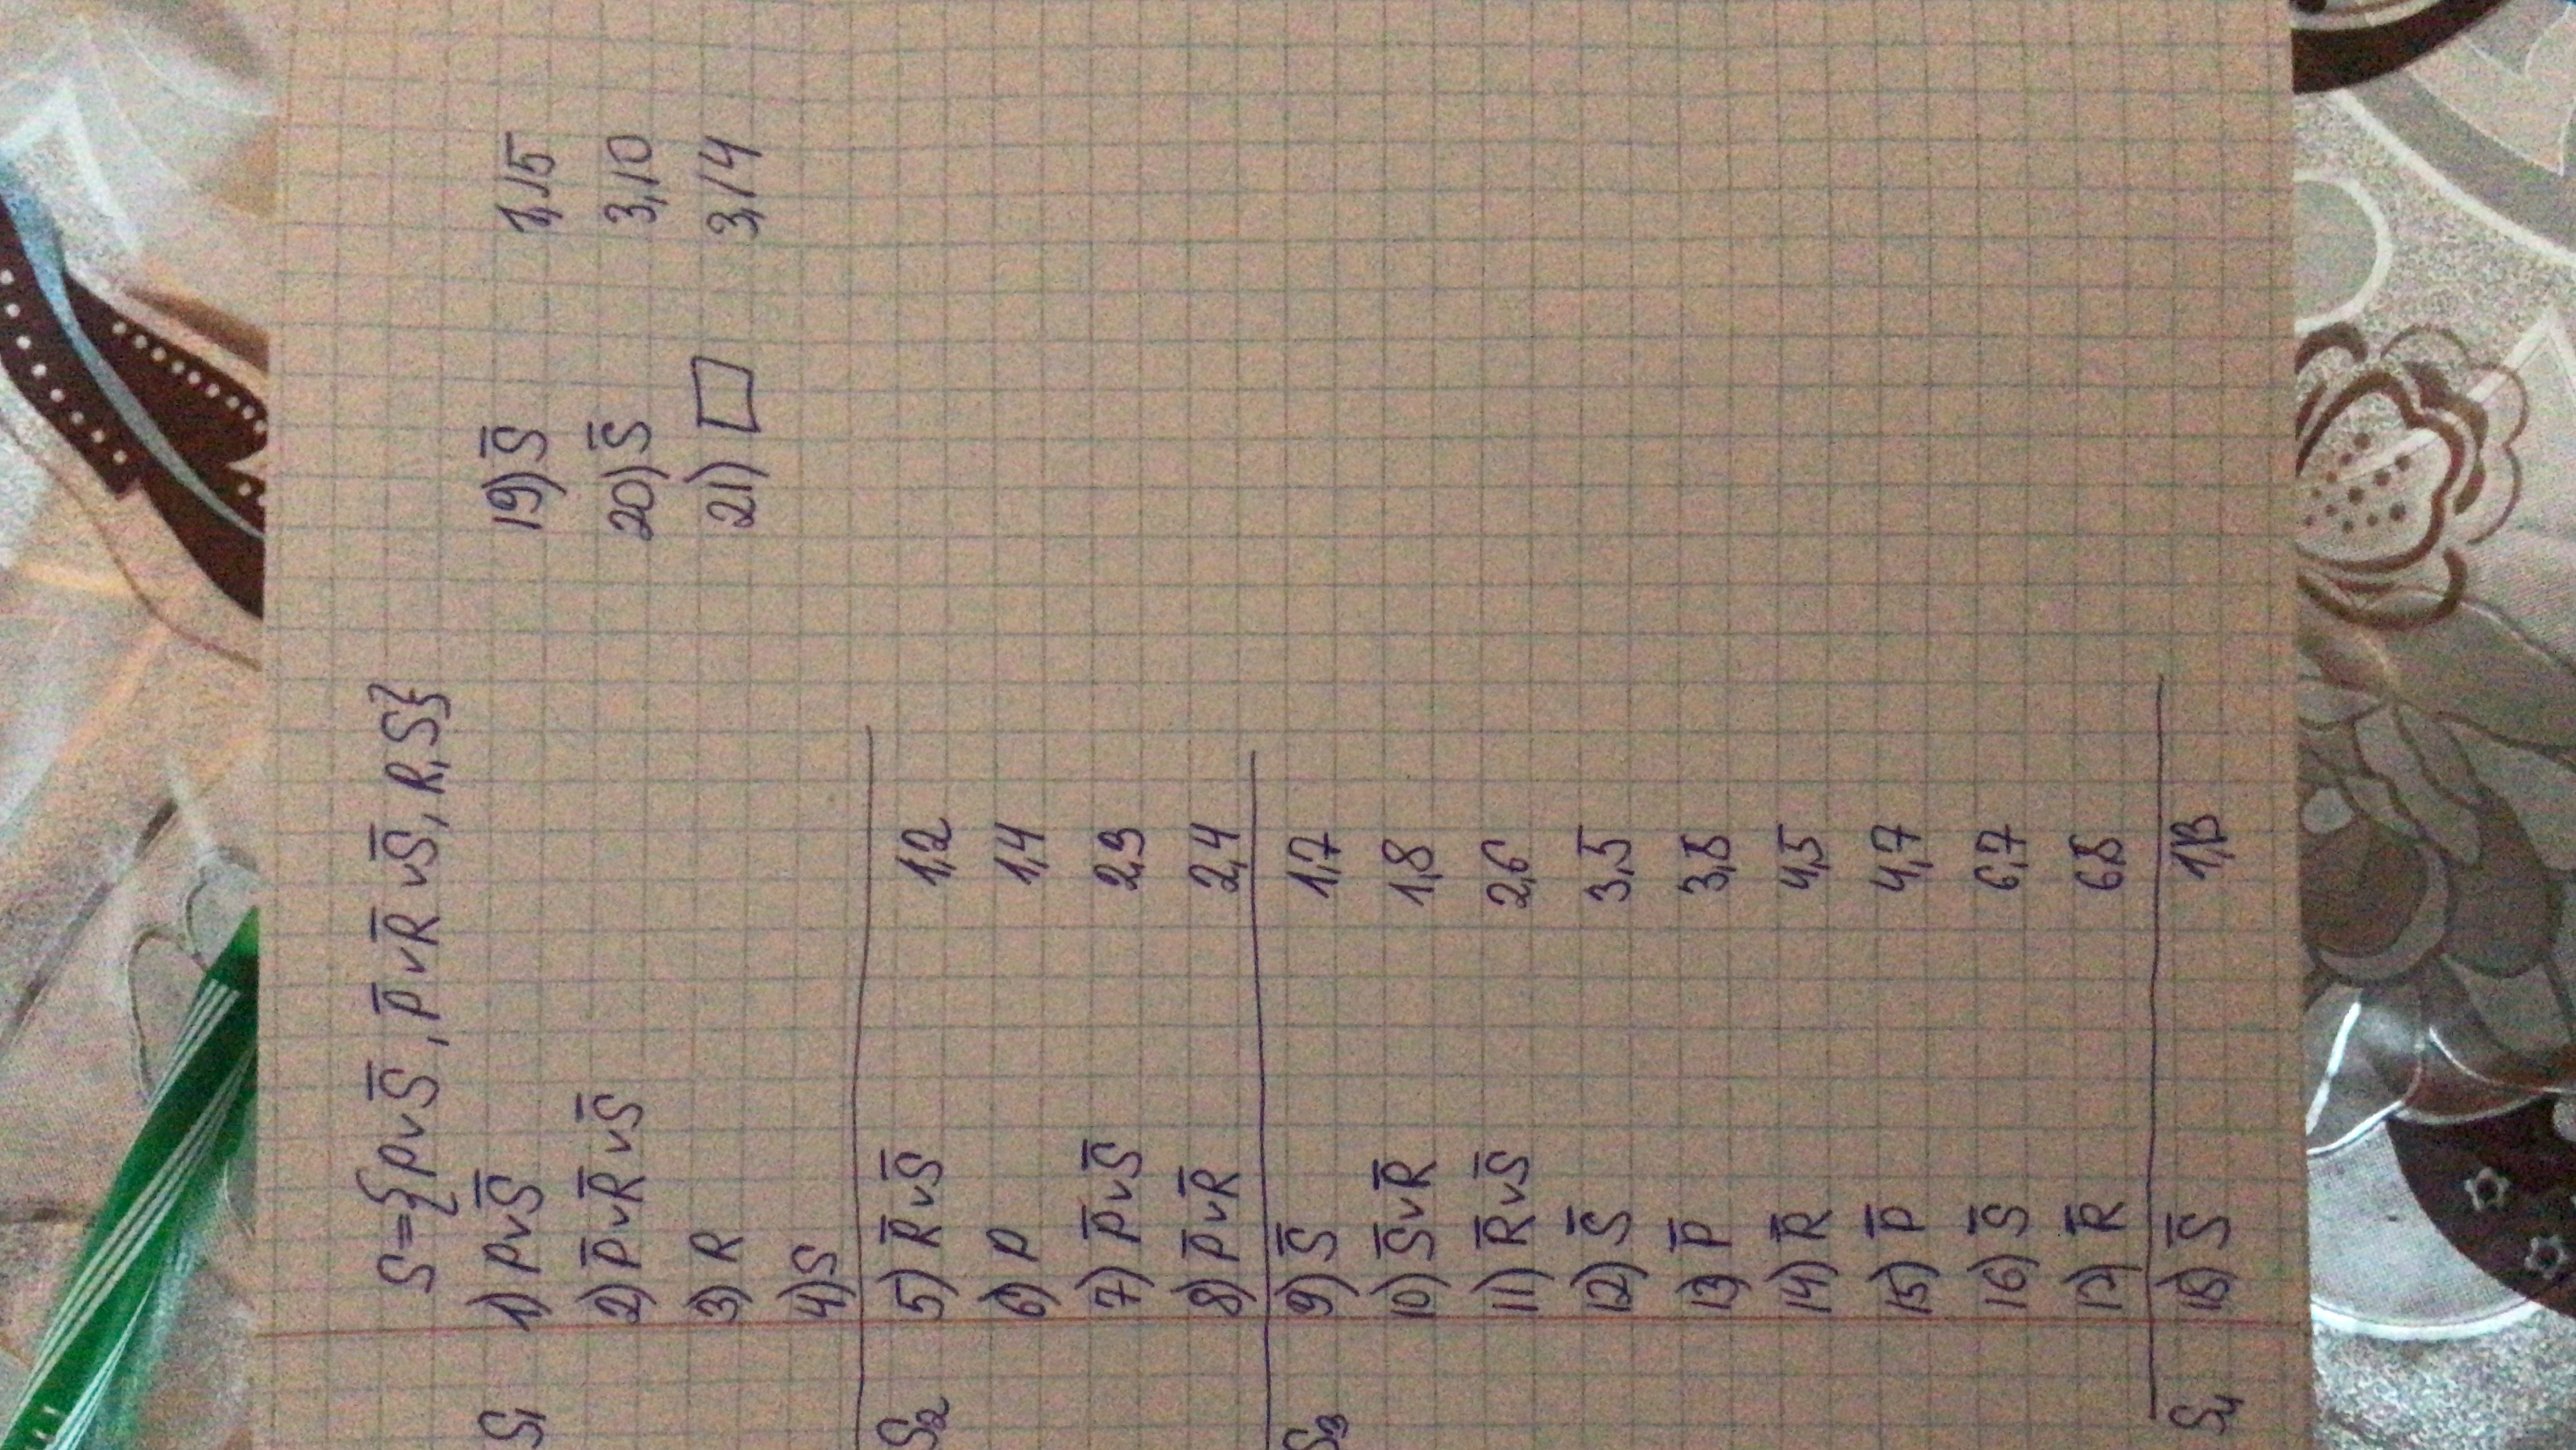 S={P∨S̅, P̅∨R̅∨S̅, R, S}
S₁ 1) P∨S̅
2) P̅∨R̅∨S̅
3) R
4) S
S₂ 5) R̅∨S̅ 1,2
6) P 1,4
7) P̅∨S̅ 2,3
8) P̅∨R̅ 2,4
S₃ 9) S̅ 1,7
10) S̅∨R̅ 1,8
11) R̅∨S̅ 2,6
12) S̅ 3,5
13) P̅ 3,8
14) R̅ 4,5
15) P̅ 4,7
16) S̅ 6,7
17) R̅ 6,8
S₄ 18) S̅ 1,13
19) S̅ 1,15
20) S̅ 3,10
21) □ 3,14